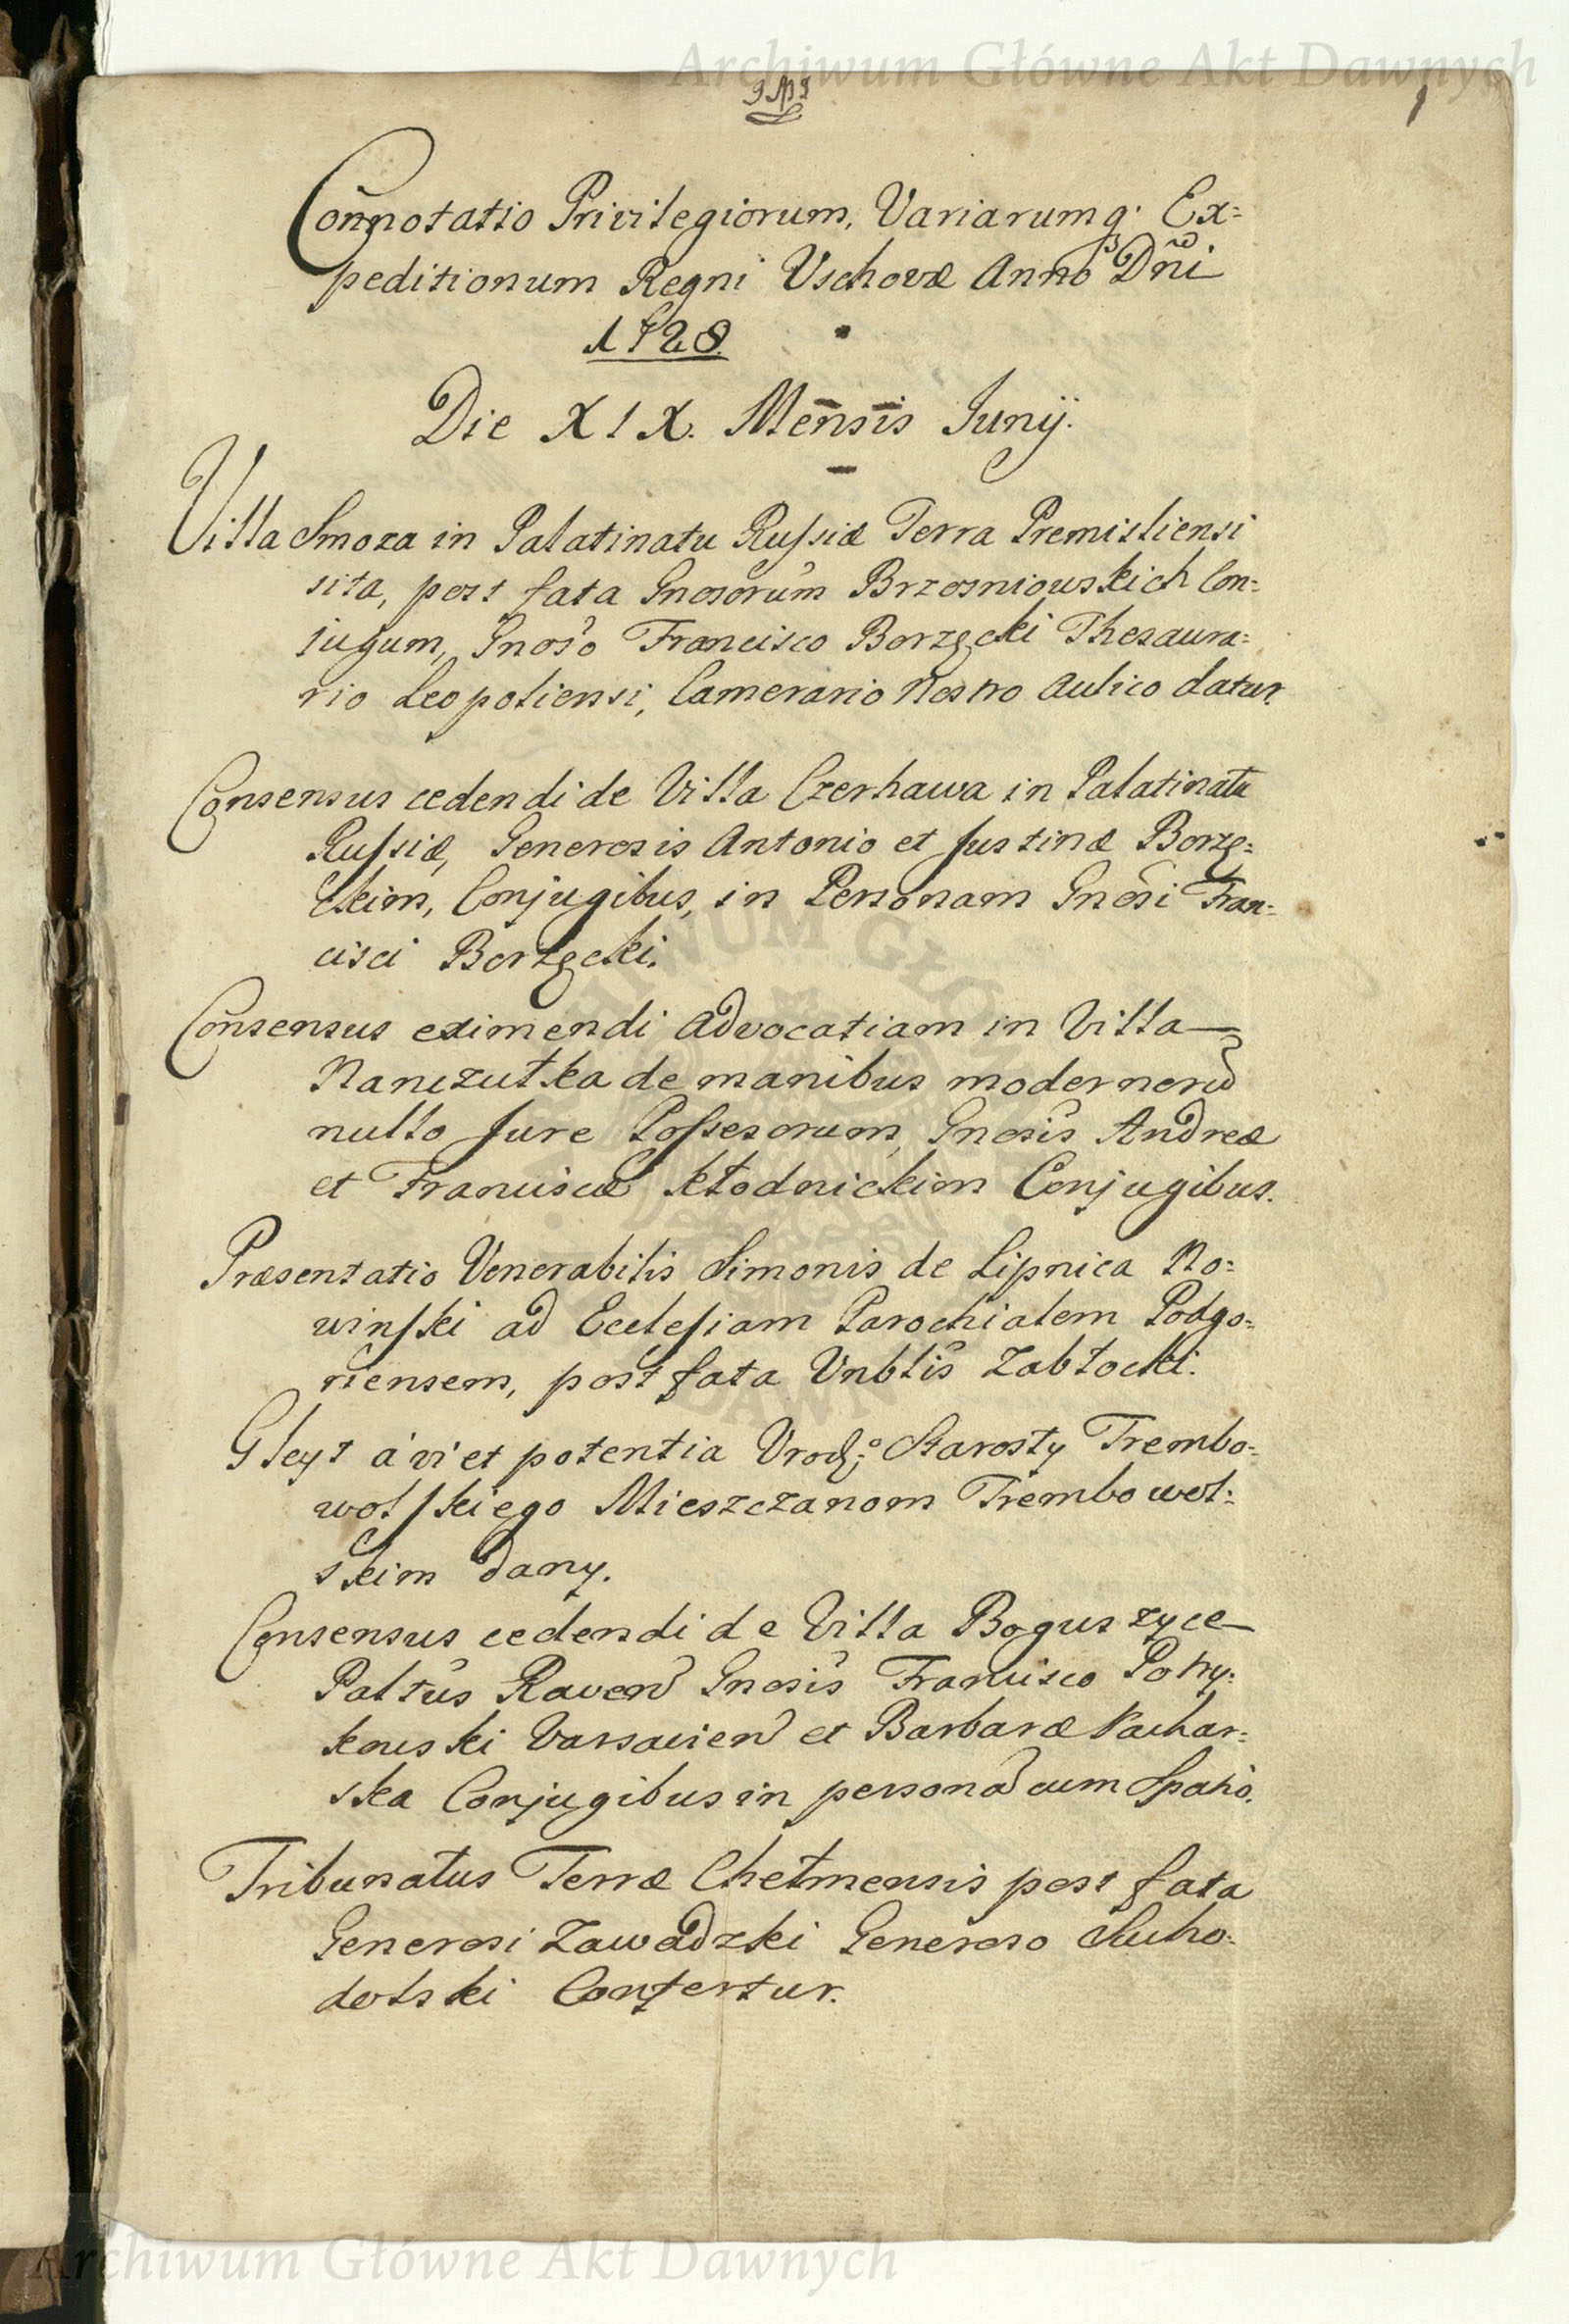 Archiwum Główne Akt Dawnych
1
Connotatio Privilegiorum, Variarumq. Ex=
peditionum Regni Vschovæ Anno Dñi
1728.
Die XIX. Mensis Junij.
Villa Smoza in Palatinatu Russiæ Terra Premisliensi
sita, post fata Gnosorum Brzesniowskich Con=
jugum, Gnoso Francisco Borzęcki Thesaura=
rio Leopoliensi, Camerario Nostro Aulico datur.
Consensus cedendi de Villa Czerhawa in Palatinatu
Russiæ, Generosis Antonio et Justinæ Borzę=
ckim, Conjugibus, in Personam Gnosi Fran=
cisci Borzęcki.
Consensus eximendi Advocatiam in Villa
Nanczułka de manibus modernorū
nullo Jure Possesorum, Gnosis Andreæ
et Franciscæ Kłodnickim Conjugibus.
Præsentatio Venerabilis Simonis de Lipnica No=
winski ad Ecclesiam Parochialem Podgo=
riensem, post fata Vnblis Zabłocki.
Gleyt a vi et potentia Vrodz: Starosty Trembo=
wolskiego Mieszczanom Trembowol=
skim dany.
Consensus cedendi de Villa Boguszyce
Paltus Raven Gnosis Francisco Potry=
kowski Varsavien et Barbaræ Pachar=
ska Conjugibus in persona cum Spatio.
Tribunatus Terræ Chełmensis post fata
Generosi Zawadzki Generoso Sucho=
dolski Confertur.
Archiwum Główne Akt Dawnych